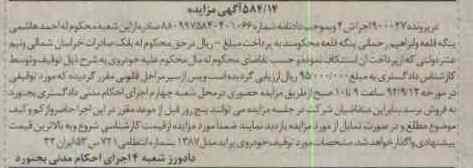 ۵۸۴/۱۴ آگهی مزایده
در پرونده ۹۰۰۰۲۷ اجرا ش ۴ وبموجب دادنامه شماره ۸۸۰۹۹۷۵۸۴۰۴۰۱۰۶۶ صادره از این شعبه محکوم له احمد هاشمی
ینگه قلعه وابراهیم رحمانی ینگه قلعه محکومند به پرداخت مبلغ - ریال در حق محکوم له بانک صادرات خراسان شمالی ونیم
عشر دولتی که از پرداخت آن استنکاف نموده و حسب تقاضای محکوم له مال محکوم علیه خودروی به شرح ذیل توقیف وتوسط
کارشناس دادگستری به مبلغ ۹۵/۰۰۰/۰۰۰ ریال ارزیابی گردیده است وپس از سیر مراحل قانونی مقرر گردیده که مورد توقیفی
در مورخه ۹۲/۹/۱۲ ساعت ۹ تا ۱۰ صبح از طریق مزایده حضوری در محل شعبه چهارم اجرای احکام مدنی دادگستری بجنورد
به فروش برسد بنابراین متقاضیان شرکت در جلسه مزایده می توانند پنج روز قبل از موعد مقرر در این اجرا حاضر واز کم و کیف
موضوع مطلع و در صورت تمایل از مورد مزایده بازدید نمایند ضمنا مورد مزایده از قیمت کارشناسی شروع و به بالاترین قیمت
پیشنهادی واگذار خواهد شد. مشخصات مورد توقیف خودروی پراید مدل ۱۳۸۷ بشماره انتظامی ۷۲۱ س ۵۳ ایران ۳۲
دادورز شعبه ۴ اجرای احکام مدنی بجنورد